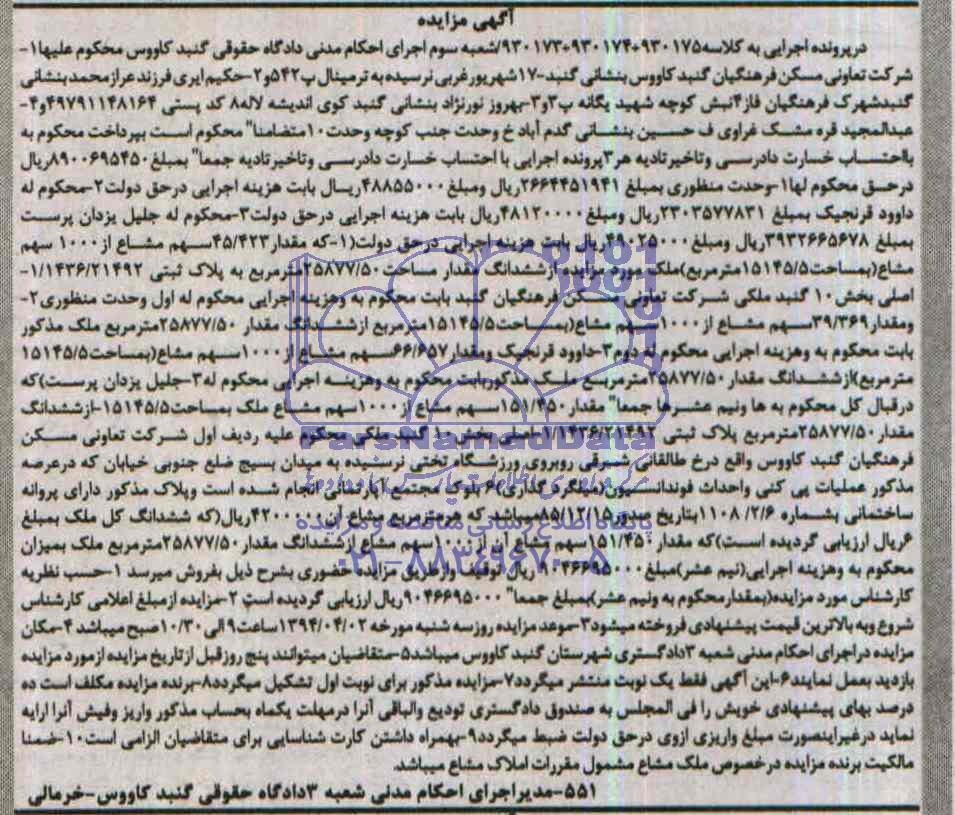 آگهی مزایده
درپرونده اجرایی به کلاسه۹۳۰۱۷۵-۹۳۰۱۷۴-۹۳۰۱۷۳/شعبه سوم اجرای احکام مدنی دادگاه حقوقی گنبد کاووس محکوم علیها۱-
شرکت تعاونی مسکن فرهنگیان گنبد کاووس بنشانی گنبد-۱۷شهریور غربی نرسیده به ترمینال پ۵۴۲و۲-حکیم ایری فرزند عراز محمد بنشانی
گنبدشهرک فرهنگیان فاز۴نبش کوچه شهید یگانه پ۳و۳-بهروز نورنژاد بنشانی گنبد کوی اندیشه لاله۸ کد پستی ۴۹۷۹۱۱۴۸۱۶۴و۴-
عبدالمجید قره مشک غراوی ف حسین بنشانی گدم آباد خ وحدت جنب کوچه وحدت۱۰متضامنا" محکوم است بپرداخت محکوم به
بااحتساب خسارت دادرسی وتاخیرتادیه هر۳پرونده اجرایی با احتساب خسارت دادرسی وتاخیرتادیه جمعا" بمبلغ ۸۹۰۰۶۹۵۴۵۰ریال
درحق محکوم لها۱-وحدت منظوری بمبلغ ۲۶۶۴۴۵۱۹۴۱ریال ومبلغ ۴۸۸۵۵۰۰۰ریال بابت هزینه اجرایی درحق دولت۲-محکوم له
داوود قرنجیک بمبلغ ۲۳۰۳۵۷۷۸۳۱ریال ومبلغ ۴۸۱۲۰۰۰۰ریال بابت هزینه اجرایی درحق دولت۳-محکوم له جلیل یزدان پرست
بمبلغ ۳۹۳۲۶۶۵۶۷۸ریال ومبلغ ۴۹۰۲۵۰۰۰ریال بابت هزینه اجرایی درحق دولت(۱-که مقدار۴۵/۴۲۳سهم مشاع از۱۰۰۰ سهم
مشاع(بمساحت۱۵۱۴۵/۵مترمربع)ملک مورد مزایده ازششدانگ مقدار مساحت۲۵۸۷۷/۵۰مترمربع به پلاک ثبتی ۱/۱۴۳۶/۲۱۴۹۲-
اصلی بخش ۱۰ گنبد ملکی شرکت تعاونی مسکن فرهنگیان گنبد بابت محکوم به وهزینه اجرایی محکوم له اول وحدت منظوری۲-
ومقدار۳۹/۳۶۹سهم مشاع از۱۰۰۰سهم مشاع(بمساحت۱۵۱۴۵/۵مترمربع ازششدانگ مقدار ۲۵۸۷۷/۵۰مترمربع ملک مذکور
بابت محکوم به وهزینه اجرایی محکوم له دوم۳-داوود قرنجیک ومقدار۶۶/۶۵۷سهم مشاع از۱۰۰۰سهم مشاع(بمساحت۱۵۱۴۵/۵
مترمربع)ازششدانگ مقدار۲۵۸۷۷/۵۰مترمربع ملک مذکوربابت محکوم به وهزینه اجرایی محکوم له۳-جلیل یزدان پرست)که
درقبال کل محکوم به ها ونیم عشرها جمعا" مقدار۱۵۱/۴۵۰سهم مشاع از۱۰۰۰سهم مشاع ملک بمساحت۱۵۱۴۵/۵-ازششدانگ
مقدار۲۵۸۷۷/۵۰مترمربع پلاک ثبتی ۱/۱۴۳۶/۲۱۴۹۲اصلی بخش ۱۰ گنبد ملکی محکوم علیه ردیف اول شرکت تعاونی مسکن
فرهنگیان گنبد کاووس واقع درخ طالقانی شرقی روبروی ورزشگاه تختی نرسیده به میدان بسیج ضلع جنوبی خیابان که درعرصه
مذکور عملیات پی کنی واحداث فونداسیون(میلگرد گذاری)۶ بلوک مجتمع آپارتمانی انجام شده است وپلاک مذکور دارای پروانه
ساختمانی بشماره ۱۱۰۸/۲/۶ بتاریخ صدور۸۵/۱۲/۱۵میباشد که هرمترمربع مشاع آن۴۲۰۰۰۰۰ریال(که ششدانگ کل ملک بمبلغ
۶ریال ارزیابی گردیده است)که مقدار ۱۵۱/۴۵۰سهم مشاع آن از۱۰۰۰سهم مشاع ازششدانگ مقدار۲۵۸۷۷/۵۰مترمربع ملک بمیزان
محکوم به وهزینه اجرایی(نیم عشر)مبلغ۹۰۴۶۶۹۵۰۰۰ریال توقیف وازطریق مزایده حضوری بشرح ذیل بفروش میرسد ۱-حسب نظریه
کارشناس مورد مزایده(بمقدارمحکوم به ونیم عشر)بمبلغ جمعا" ۹۰۴۶۶۹۵۰۰۰ریال ارزیابی گردیده است ۲-مزایده ازمبلغ اعلامی کارشناس
شروع وبه بالاترین قیمت پیشنهادی فروخته میشود۳-موعد مزایده روزسه شنبه مورخه ۱۳۹۴/۰۴/۰۲ساعت۹الی۱۰/۳۰صبح میباشد ۴-مکان
مزایده دراجرای احکام مدنی شعبه ۳دادگستری شهرستان گنبد کاووس میباشد۵-متقاضیان میتوانند پنج روزقبل ازتاریخ مزایده ازمورد مزایده
بازدید بعمل نمایند۶-این آگهی فقط یک نوبت منتشر میگردد۷-مزایده مذکور برای نوبت اول تشکیل میگردد۸-برنده مزایده مکلف است ده
درصد بهای پیشنهادی خویش را فی المجلس به صندوق دادگستری تودیع والباقی آنرا درمهلت یکماه بحساب مذکور واریز وفیش آنرا ارایه
نماید درغیراینصورت مبلغ واریزی ازوی درحق دولت ضبط میگردد۹-بهمراه داشتن کارت شناسایی برای متقاضیان الزامی است۱۰-ضمنا
مالکیت برنده مزایده درخصوص ملک مشاع مشمول مقررات املاک مشاع میباشد.
۵۵۱-مدیراجرای احکام مدنی شعبه ۳دادگاه حقوقی گنبد کاووس-خرمالی
ParsNamadData
پایگاه اطلاع رسانی مناقصه و مزایده
۰۲۱-۸۸۳۴۹۶۷۰-۵